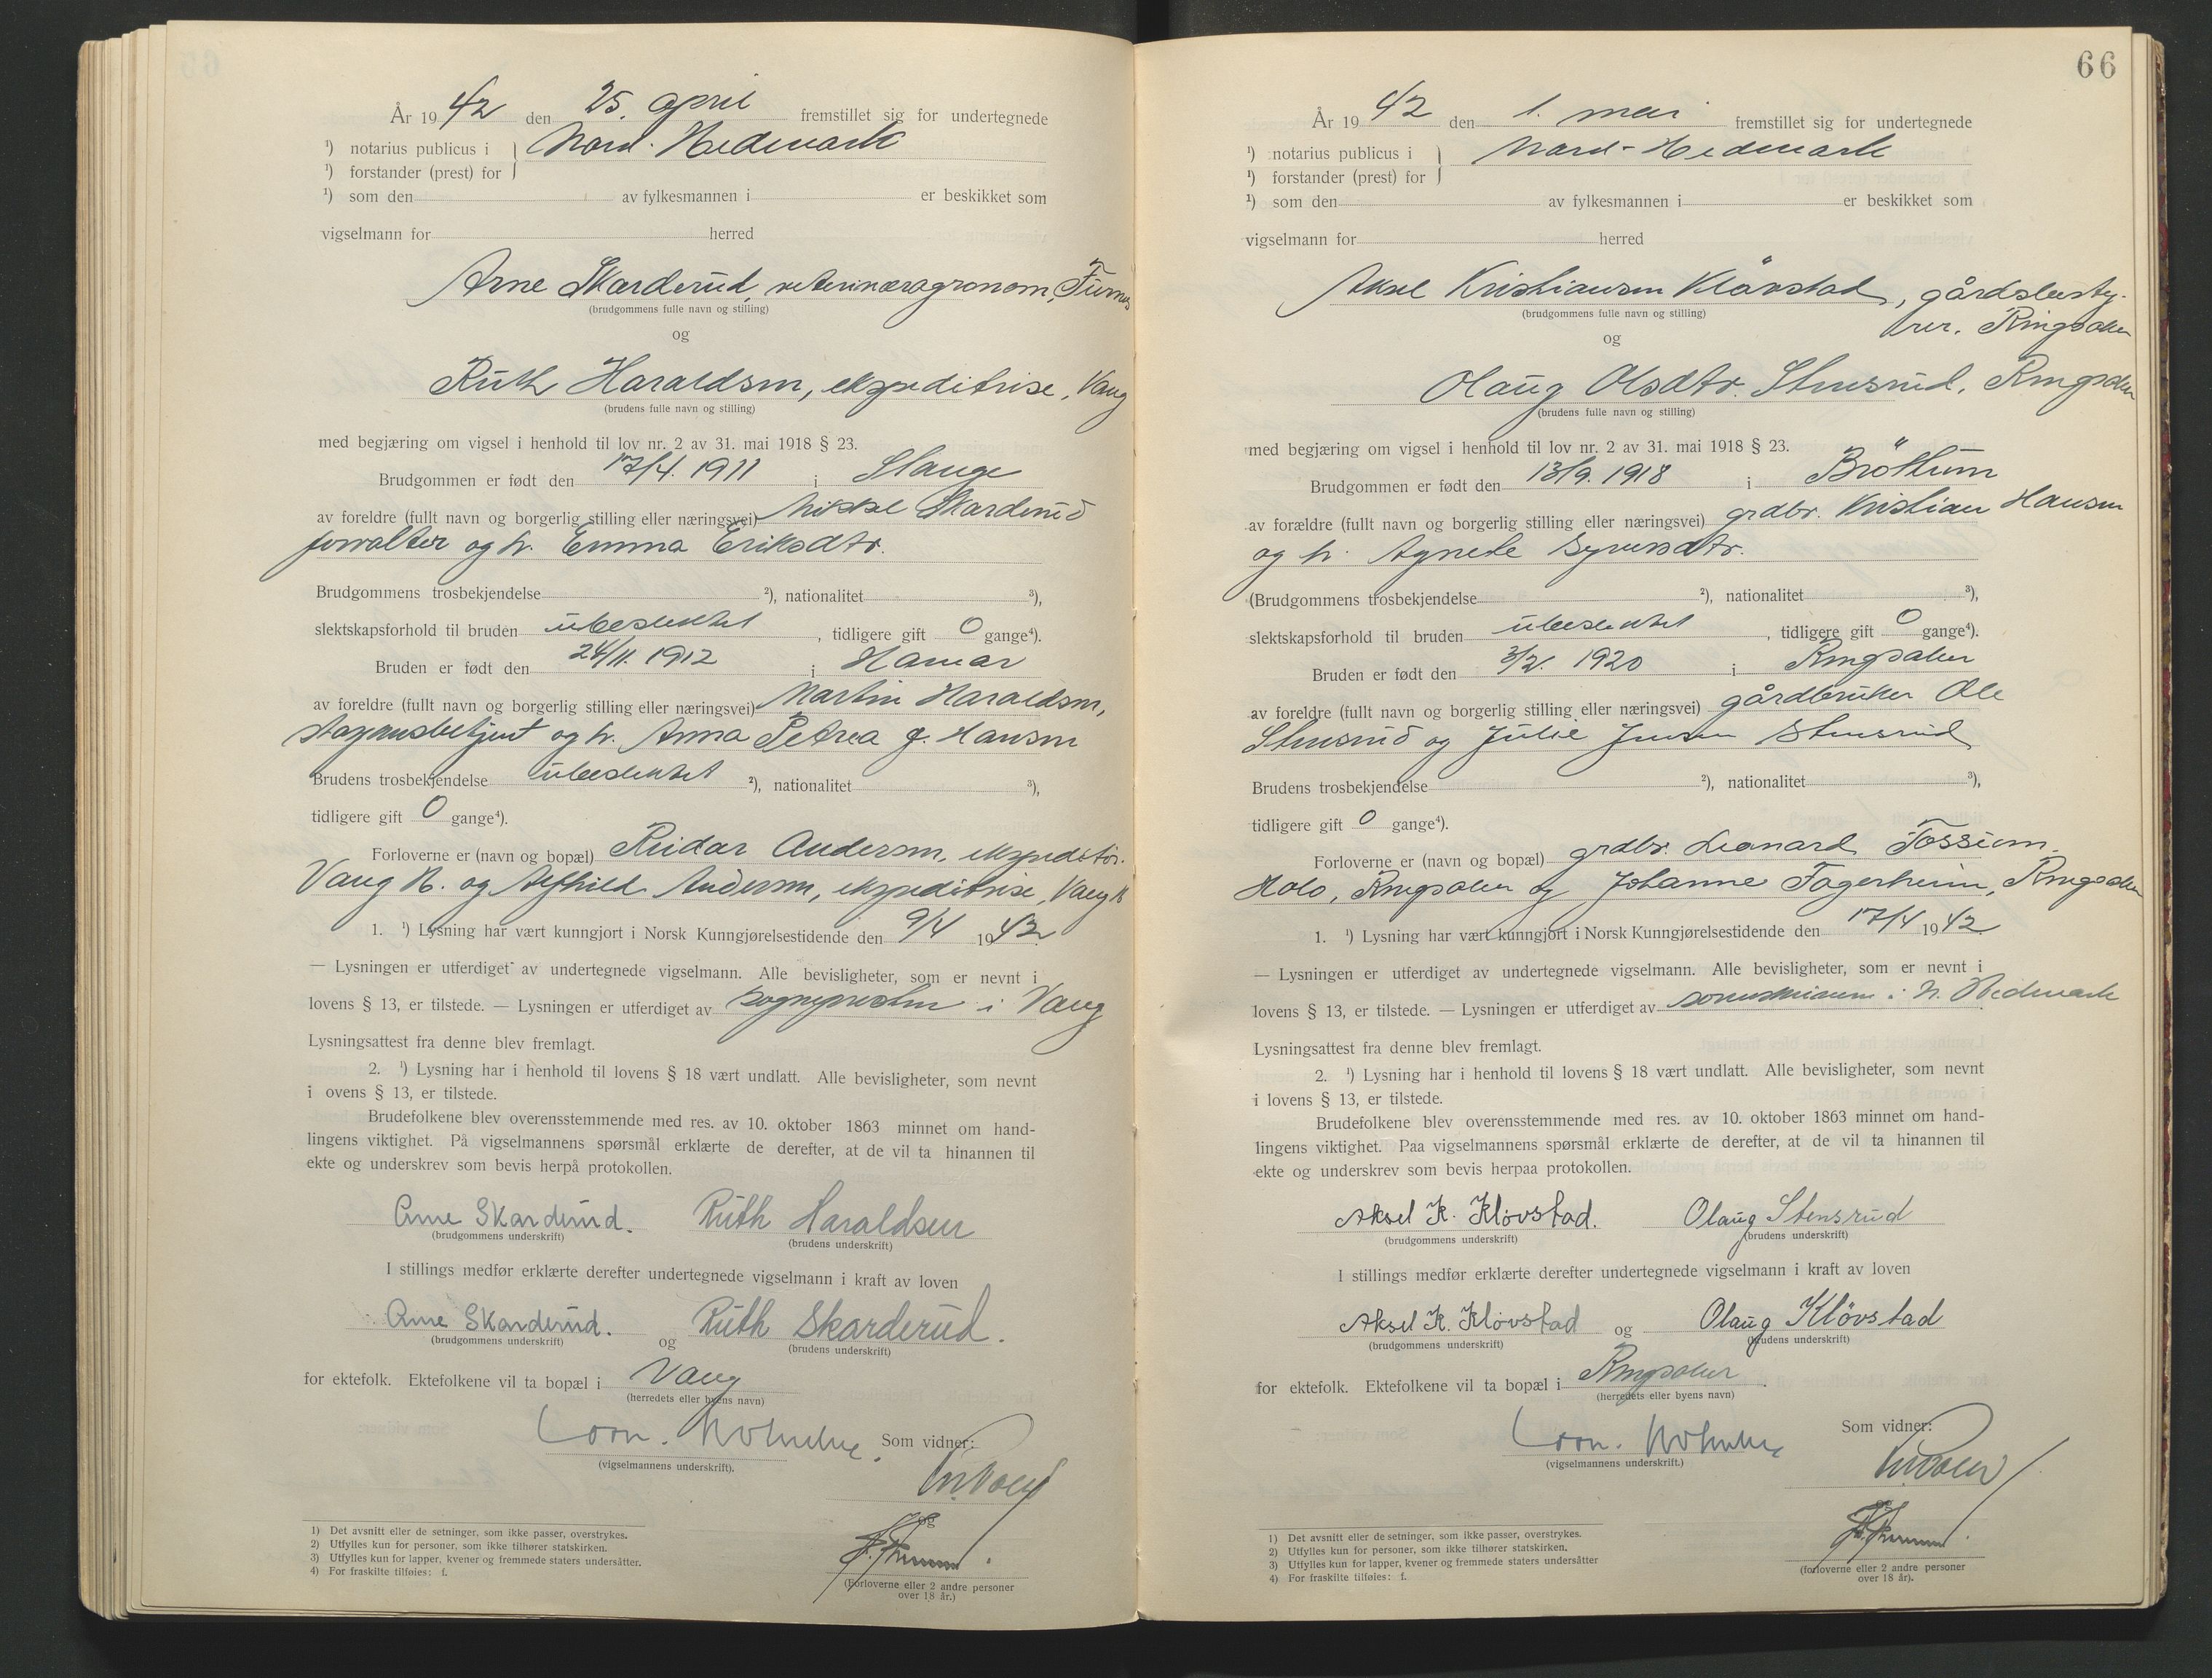 År 1942 den 25. april fremstillet sig for undertegnede
¹) notarius publicus i } Nord-Hedemark
¹) forstander (prest) for
¹) som den av fylkesmannen i er beskikket som
vigselmann for herred
Arne Skarderud, veterinæragronom, Furnes
(brudgommens fulle navn og stilling)
og
Ruth Haraldsen, ekspeditrise, Vang
(brudens fulle navn og stilling)
med begjæring om vigsel i henhold til lov nr. 2 av 31. mai 1918 § 23.
Brudgommen er født den 17/4. 1911 i Stange
av foreldre (fullt navn og borgerlig stilling eller næringsvei) Mikkel Skarderud
forvalter og h. Emma Eriksdtr.
Brudgommens trosbekjendelse ²), nationalitet ³),
slektskapsforhold til bruden ubeslektet, tidligere gift 0 gange⁴).
Bruden er født den 24/11. 1912 i Hamar
av foreldre (fullt navn og borgerlig stilling eller næringsvei) Martin Haraldsen,
stasjonsbetjent og h. Anna Petrea f. Hansen
Brudens trosbekjendelse ubeslektet ²), nationalitet ³),
tidligere gift 0 gange⁴).
Forloverne er (navn og bopæl) Reidar Andersen, ekspeditør.
Vang H. og Alfhild Andersen, ekspeditrise, Vang H
1. ¹) Lysning har vært kunngjort i Norsk Kunngjørelsestidende den 9/4 1942
— Lysningen er utferdiget av undertegnede vigselmann. Alle bevisligheter, som er nevnt i
lovens § 13, er tilstede. — Lysningen er utferdiget av sognepresten i Vang
Lysningsattest fra denne blev fremlagt.
2. ¹) Lysning har i henhold til lovens § 18 vært undlatt. Alle bevisligheter, som nevnt
i ovens § 13, er tilstede.
Brudefolkene blev overensstemmende med res. av 10. oktober 1863 minnet om hand-
lingens viktighet. På vigselmannens spørsmål erklærte de derefter, at de vil ta hinannen til
ekte og underskrev som bevis herpå protokollen.
Arne Skarderud. Ruth Haraldsen
(brudgommens underskrift) (brudens underskrift)
I stillings medfør erklærte derefter undertegnede vigselmann i kraft av loven
Arne Skarderud. og Ruth Skarderud.
(brudgommens underskrift) (brudens underskrift)
for ektefolk. Ektefolkene vil ta bopæl i Vang
(herredets eller byens navn)
Som vidner:
(vigselmannens underskrift).
og
1) Det avsnitt eller de setninger, som ikke passer, overstrykes.
2) Utfylles kun for personer, som ikke tilhører statskirken.
3) Utfylles kun for lapper, kvener og fremmede staters undersåtter.
4) For fraskilte tilføies: f.
(Forloverne eller 2 andre personer
over 18 år.)
66
År 1942 den 1. mai fremstillet sig for undertegnede
¹) notarius publicus i } Nord-Hedemark
¹) forstander (prest) for
¹) som den av fylkesmannen i er beskikket som
vigselmann for herred
Aksel Kristiansen Kløvstad, gårdsbesty-
rer. Ringsaker
(brudgommens fulle navn og stilling)
og
Olaug Olsdtr. Stensrud, Ringsaker
(brudens fulle navn og stilling)
med begjæring om vigsel i henhold til lov nr. 2 av 31. mai 1918 § 23.
Brudgommen er født den 13/9. 1918 i Brøttum
av forældre (fullt navn og borgerlig stilling eller næringsvei) grdbr. Kristian Hansen
og h. Agnete Syversdtr.
(Brudgommens trosbekjendelse ²), nationalitet ³),
slektskapsforhold til bruden ubeslektet, tidligere gift 0 gange⁴).
Bruden er født den 3/2. 1920 i Ringsaker
av foreldre (fullt navn og borgerlig stilling eller næringsvei) gårdbruker Ole
Stensrud og Julie Jensen Stensrud
Brudens trosbekjendelse ²), nationalitet ³),
tidligere gift 0 gange⁴).
Forloverne er (navn og bopæl) grdbr. Leonard Fossum.
Holo, Ringsaker og Johanne Fagerheim, Ringsaker
1. ¹) Lysning har vært kunngjort i Norsk Kunngjørelsestidende den 17/4 1942.
— Lysningen er utferdiget av undertegnede vigselmann. Alle bevisligheter, som er nevnt i
lovens § 13, er tilstede. — Lysningen er utferdiget av sorenskriveren i N. Hedemark
Lysningsattest fra denne blev fremlagt.
2. ¹) Lysning har i henhold til lovens § 18 vært undlatt. Alle bevisligheter, som nevnt
i lovens § 13, er tilstede.
Brudefolkene blev overensstemmende med res. av 10. oktober 1863 minnet om hand-
lingens viktighet. Paa vigselmannens spørsmål erklærte de derefter, at de vil ta hinannen til
ekte og underskrev som bevis herpaa protokollen.
Aksel K. Kløvstad. Olaug Stensrud
(brudgommens underskrift) (brudens underskrift)
I stillings medfør erklærte derefter undertegnede vigselmann i kraft av loven
Aksel K. Kløvstad og Olaug Kløvstad
(brudgommens underskrift) (brudens underskrift)
for ektefolk. Ektefolkene vil ta bopæl i Ringsaker
(herredets eller byens navn)
Som vidner:
(vigselmannens underskrift.)
og
1) Det avsnitt eller de setninger, som ikke passer, overstrykes.
2) Utfylles kun for personer, som ikke tilhører statskirken.
3) Utfylles kun for lapper, kvener og fremmede staters undersåtter
4) For fraskilte tilføies: f.
(forloverne eller 2 andre personer
over 18 år).